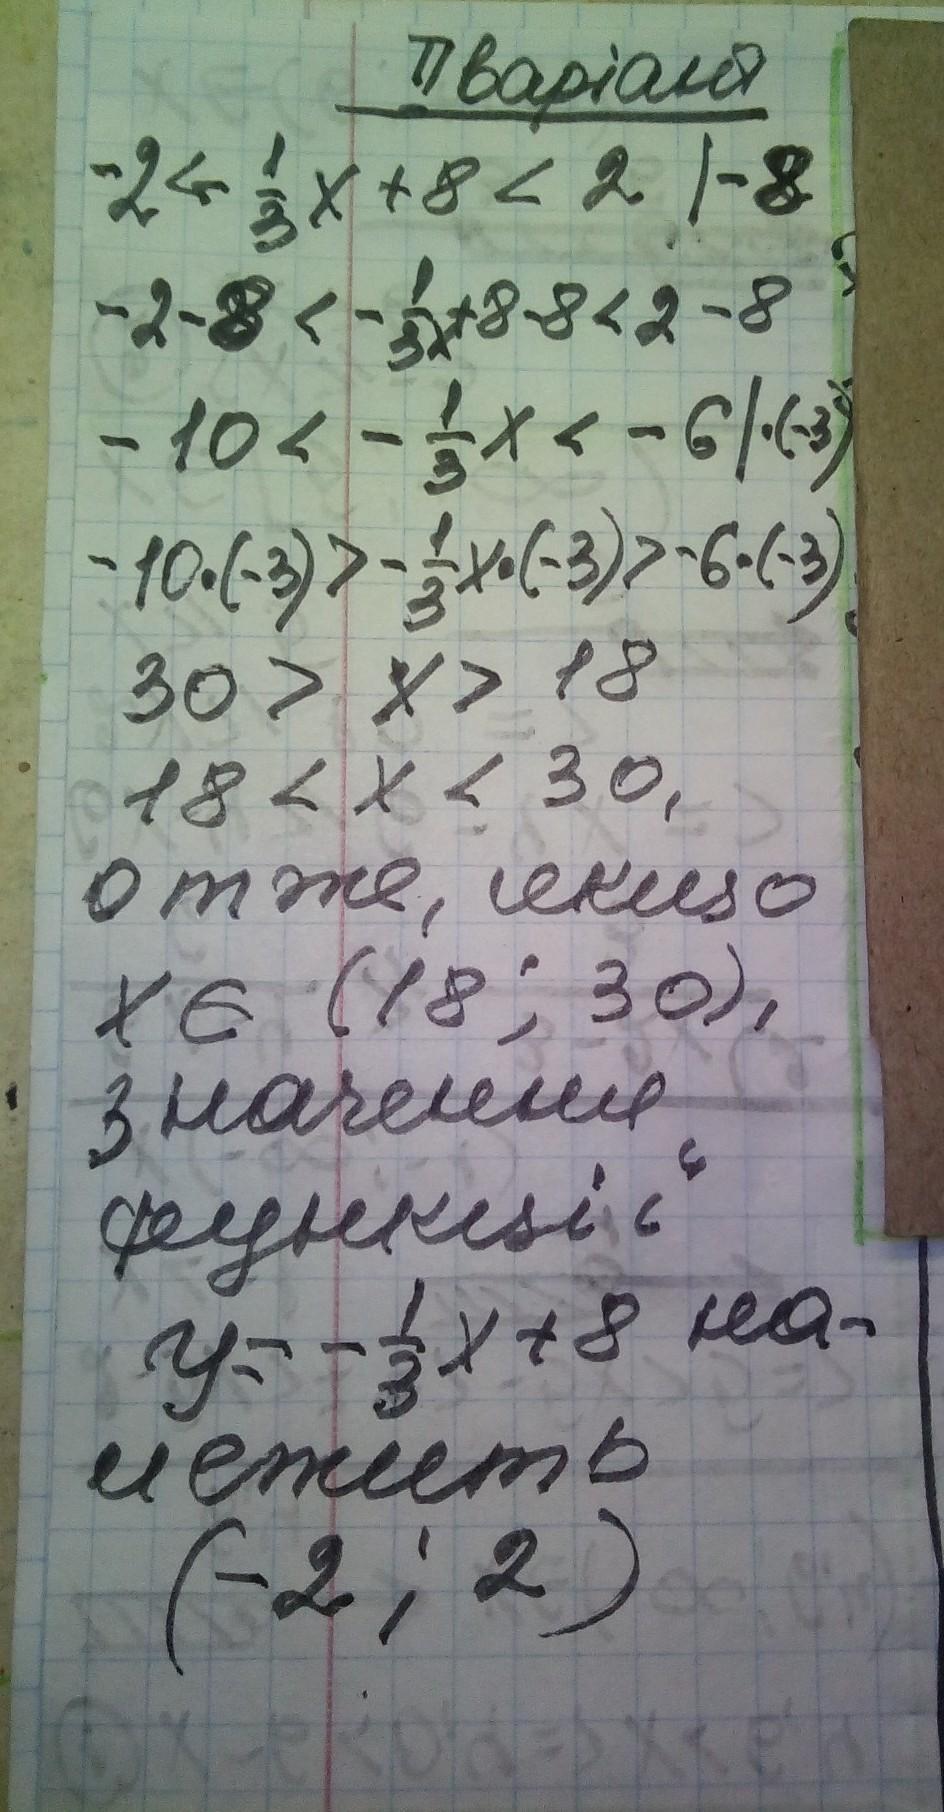 II варіант
-2 < -1/3 x + 8 < 2 | -8
-2-8 < -1/3 x +8-8 < 2 -8
-10 < -1/3 x < -6 | ·(-3)
-10·(-3) > -1/3 x·(-3) > -6·(-3)
30 > x > 18
18 < x < 30,
отже, якщо
x ∈ (18 ; 30),
значення
функції
y = -1/3 x + 8 на-
лежить
(-2 ; 2)